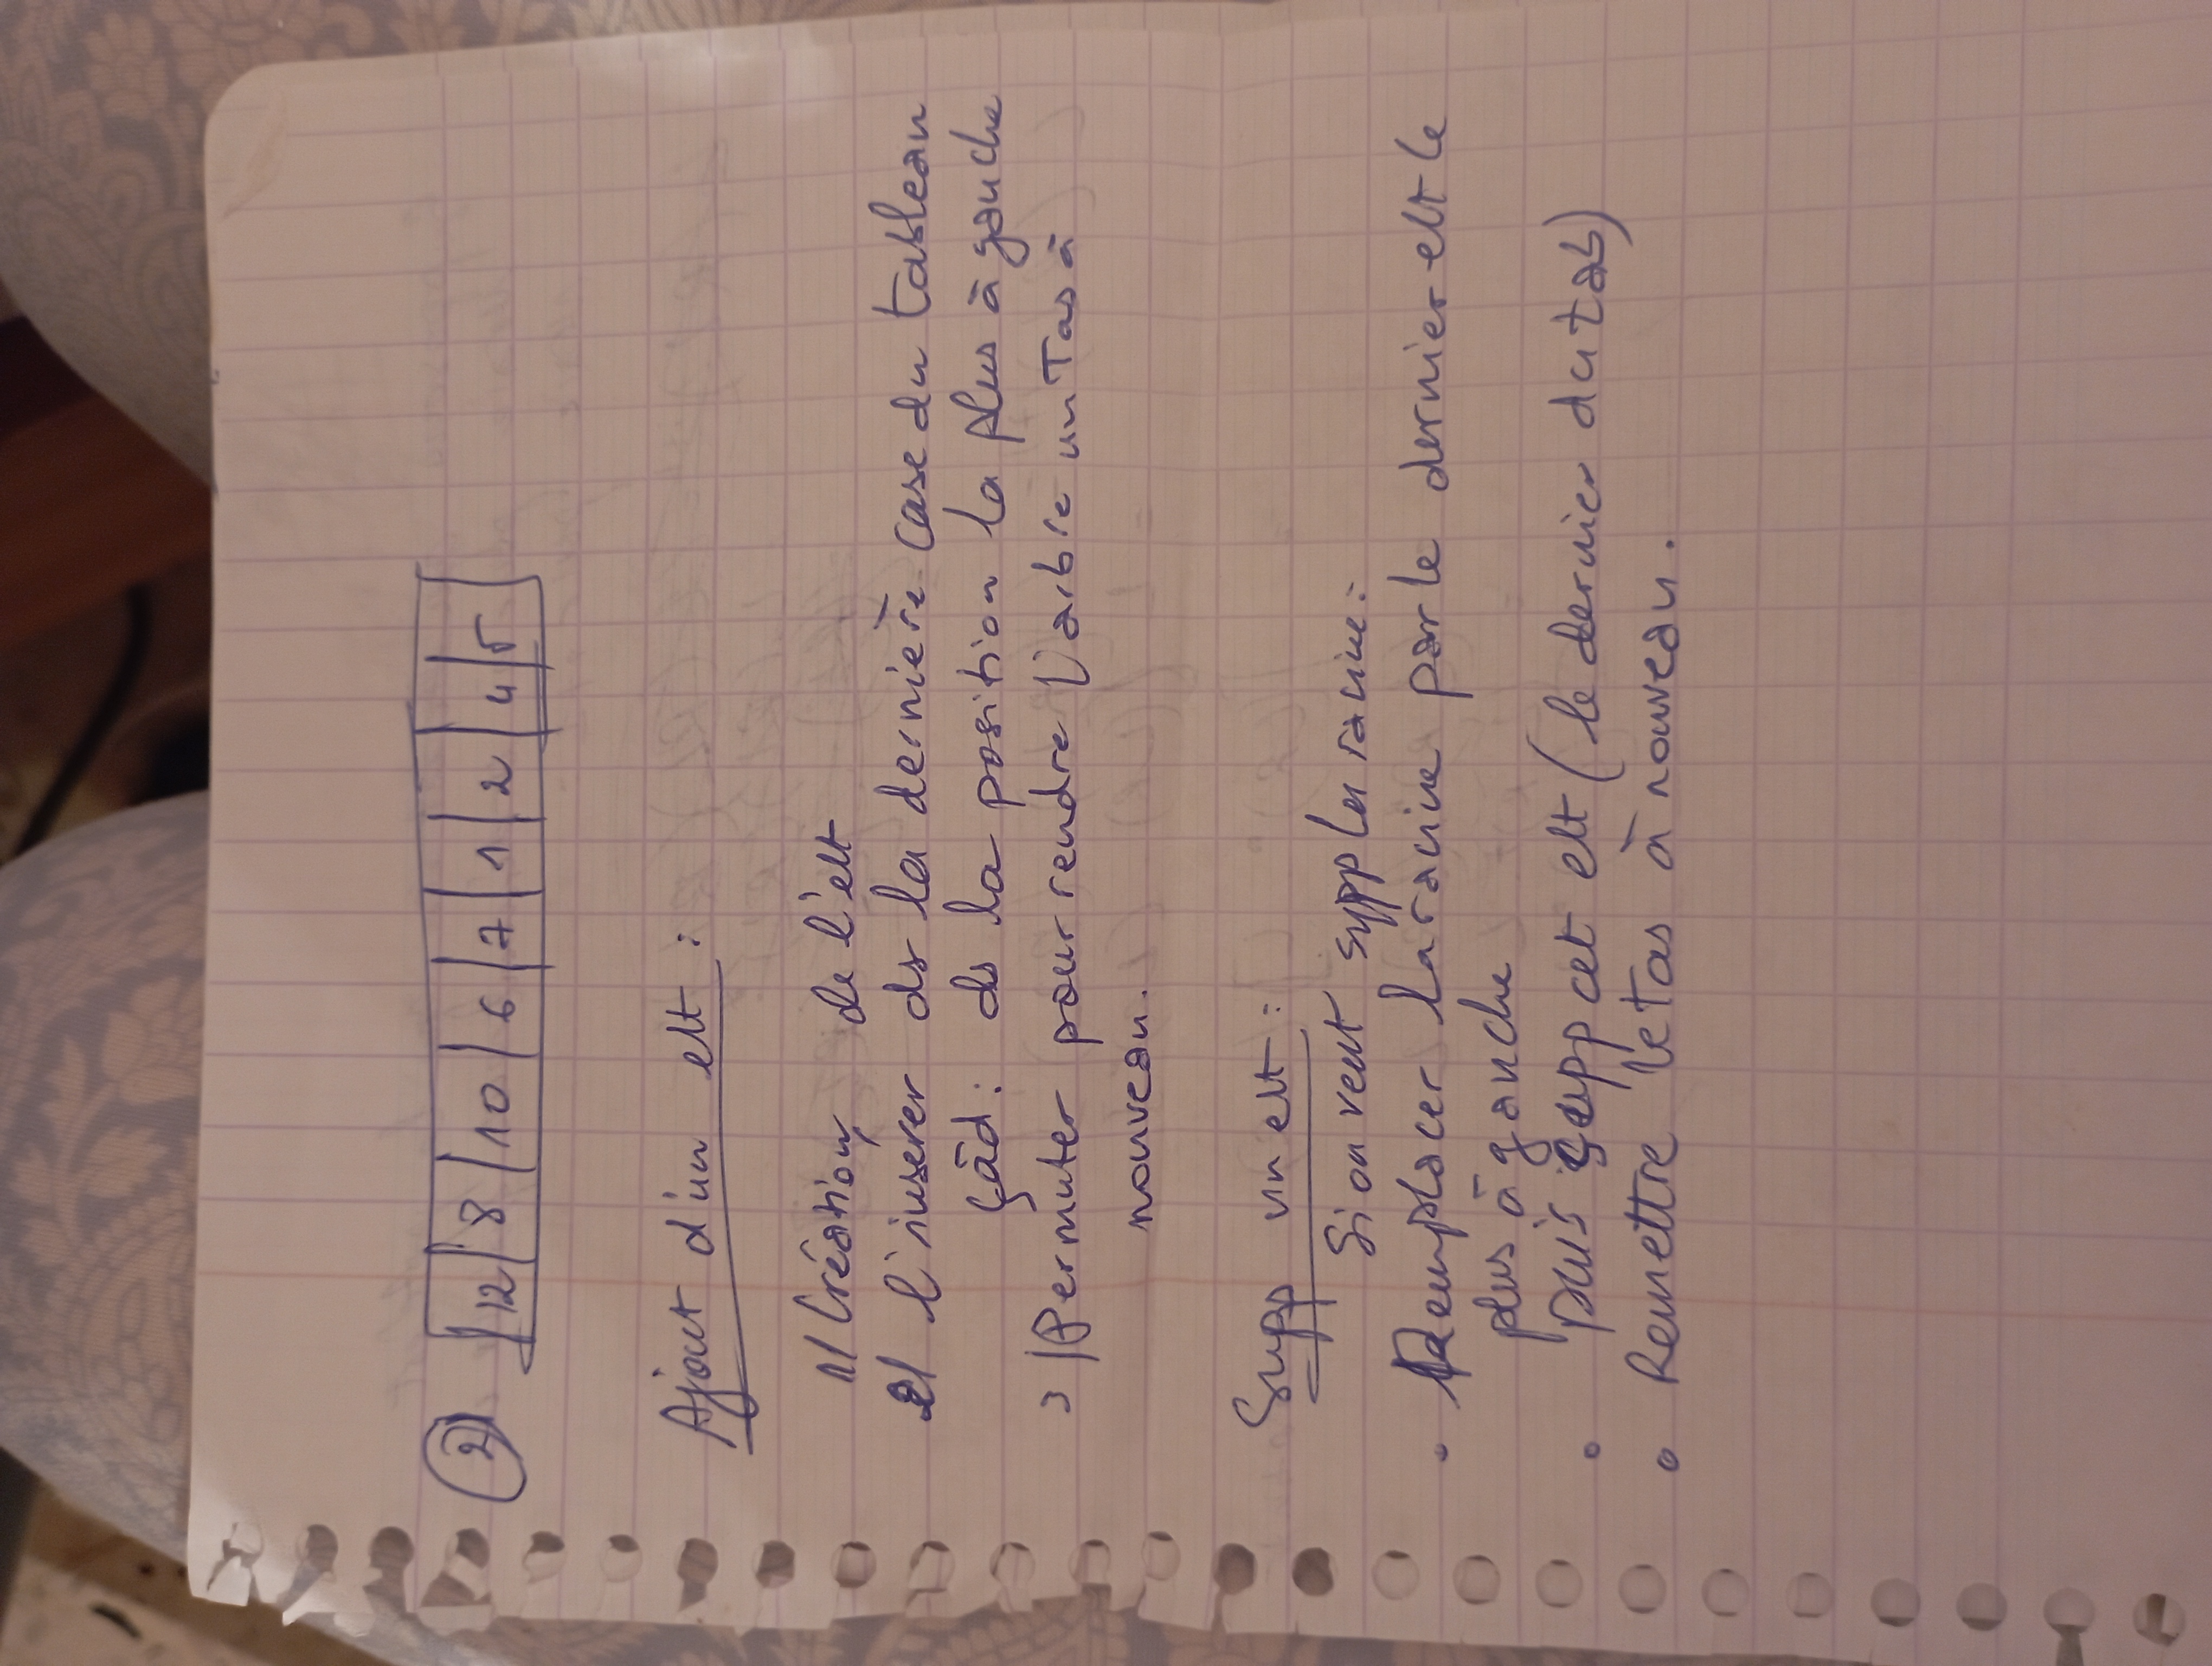 2) | 12 | 8 | 10 | 6 | 7 | 1 | 2 | 4 | 5 |
Ajout d'un elt :
1/ Création de l'elt
2/ l'inserer ds la dernière case du tableau
çàd : ds la position la plus à gauche
3/ Permuter pour rendre l'arbre un Tas à
nouveau.
Supp un elt :
Si on veut supp la racine :
• Remplacer la racine par le dernier elt le
plus à gauche
• puis supp cet elt (le dernier du tab)
• Remettre le tas à nouveau.